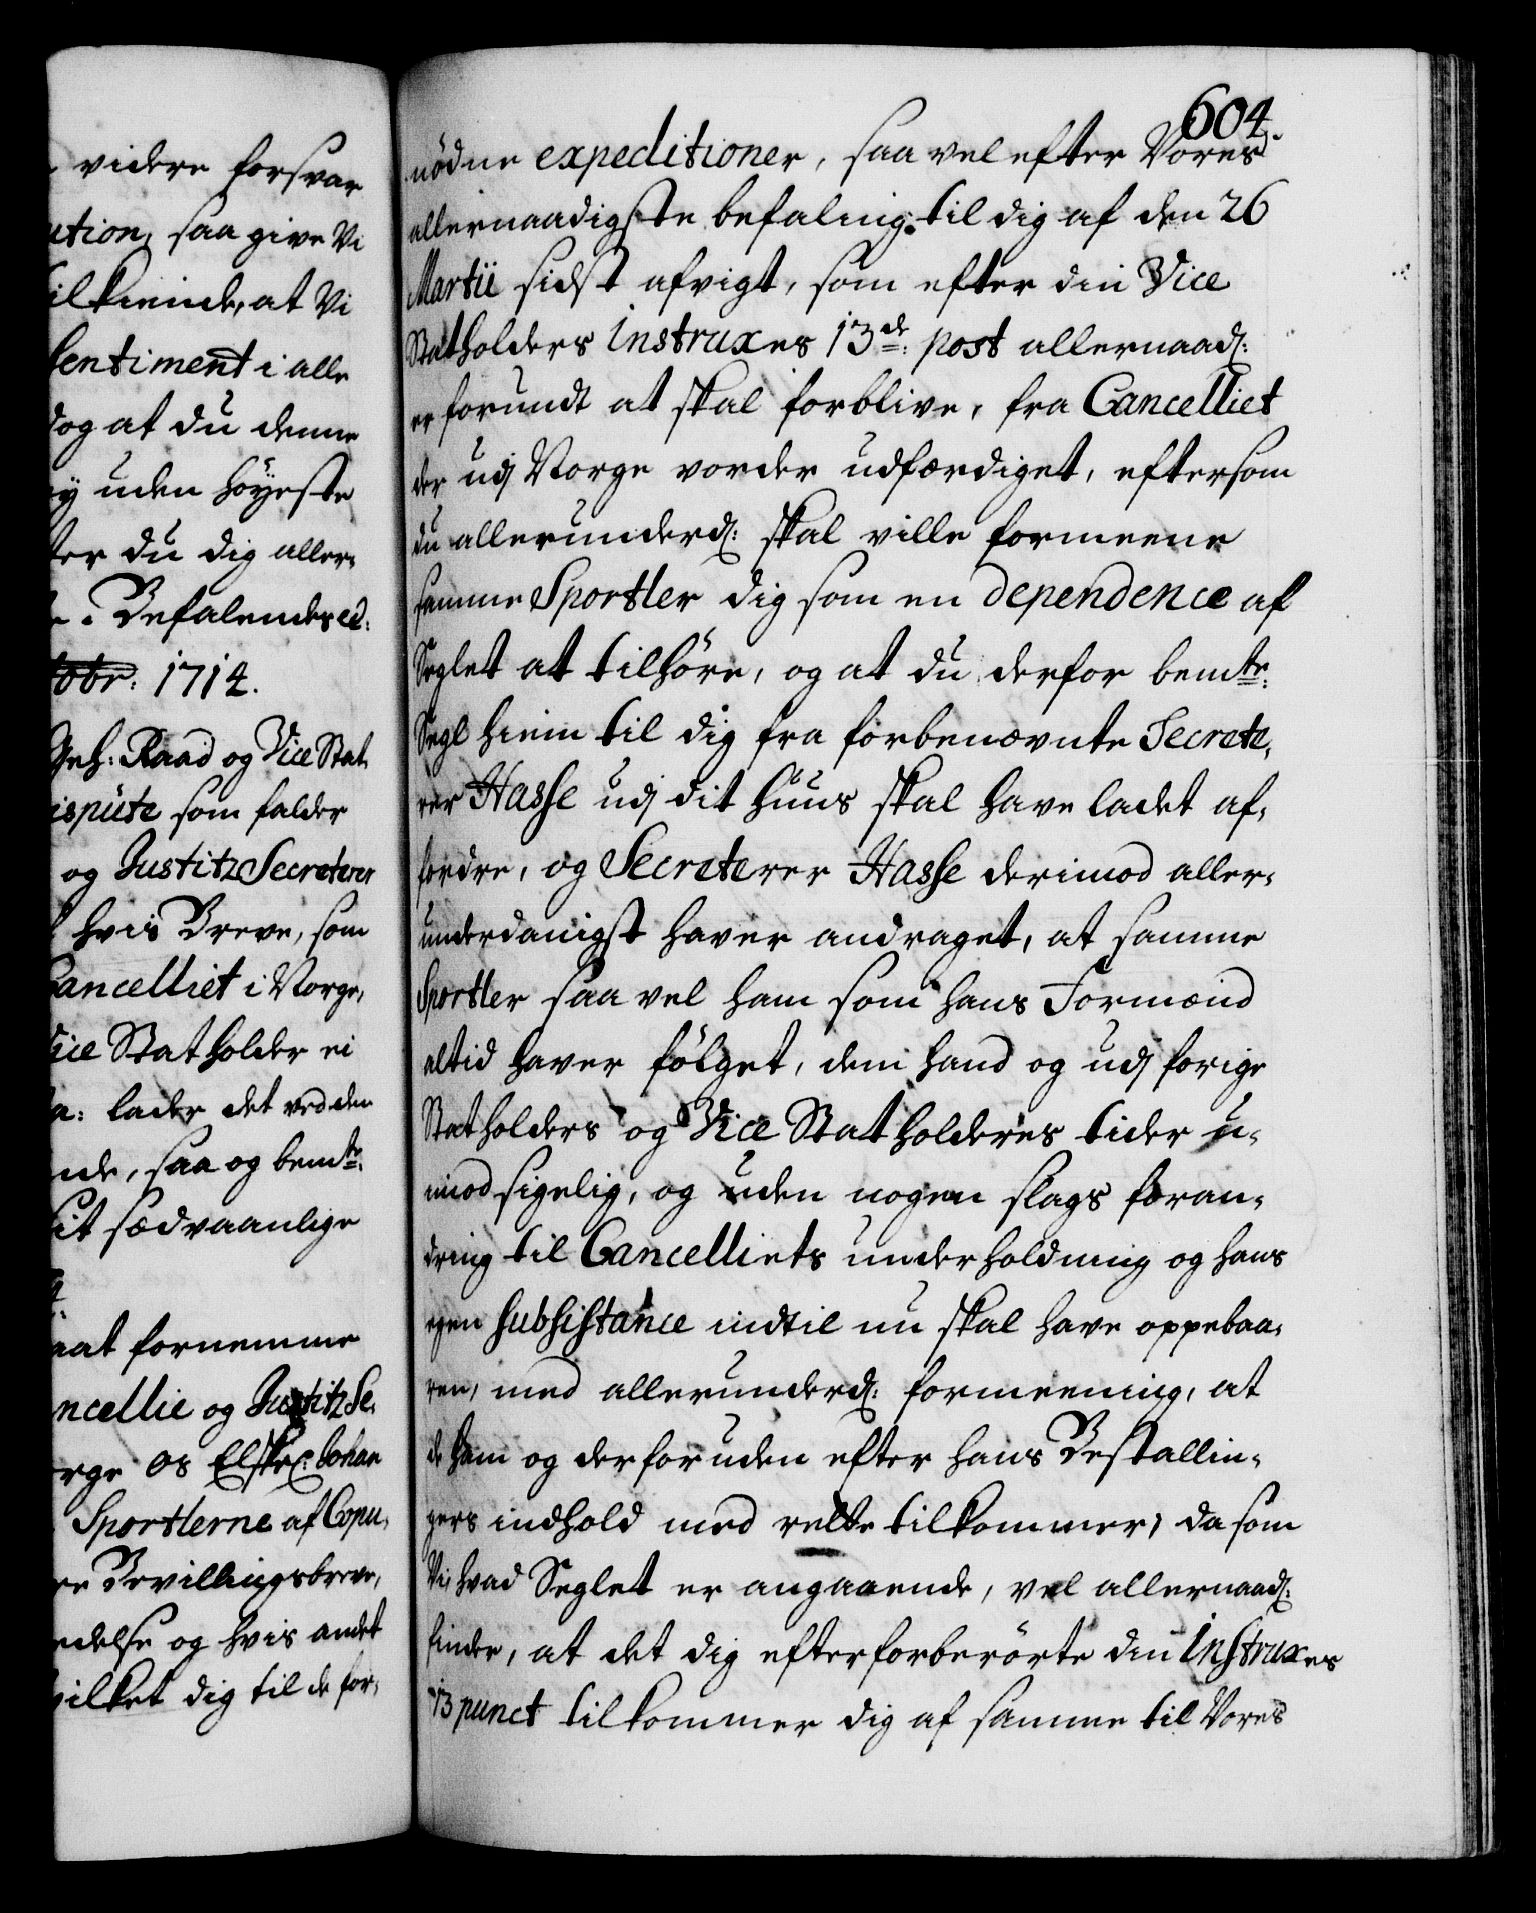 videre forsvar
ution, saa give Vi
tilkiende, at Vi
sentiment i alle
dog at du denne
ey uden höyeste
ter du dig aller,
Befalendes etc:
tobr: 1714.
Geh: Raad og Vice Stat
ispüte som falder
og Justitz Secreterer
hvis Breve, som
Cancelliet i Norge,
Vice Statholder ei
a: lader det ved den
nde, saa og bemte:
sit sædvaanlige
aat fornemme
ncellie og Justitz Se,
orge os Elskel: Johan
Sportlerne af Copu,
re Bevillingsbreve,
edelse og hvis andet
hvilket dig til de for,
604.
nödne expeditioner, saa vel efter Vores
allernaadigste befaling til dig af den 26
Martii sidst afvigt, som efter din Vice
Statholders instruxes 13de: post allernaad:
er forundt at skal forblive, fra Cancelliet
der udj Norge vorder udfærdiget, eftersom
du allerunderd: skal ville formeene
samme Sportler dig som en dependence af
Seglet at tilhöre, og at du derfor bemte:
Segl hiem til dig fra forbenævnte Secrete,
rer Hasse udj dit Huus skal have ladet af,
fordre, og Secreterer Hasse derimod aller,
underdanigst haver andraget, at samme
Sportler saa vel ham som hans Formænd
altid haver fölget, dem hand og udj forige
Statholders og Vice Statholderes tider u,
imodsigelig, og uden nogen slags foran,
dring til Cancelliets underholdning og hans
egen subsistance indtil nu skal have oppebaa,
ren, med allerunderd: formeening, at
de ham og derforuden efter hans Bestallin,
gers indhold med rette tilkommer; da som
Vi, hvad Seglet er angaaende, vel allernaad:
finde, at det dig efter forberörte din Instruxes
13 punct tilkommer dig af samme til Vores